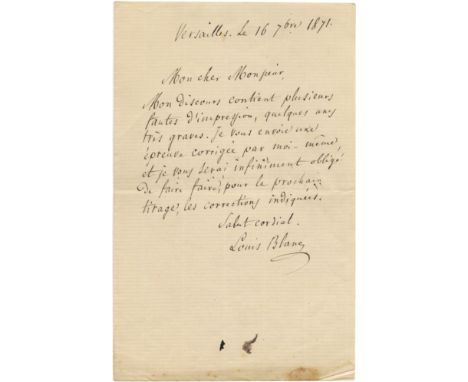 Versailles. Le 16 7bre 1871.
Mon cher Monsieur,
Mon discours contient plusieurs
fautes d'impression, quelques unes
très graves. Je vous envoie une
épreuve corrigée par moi-même,
et je vous serai infiniment obligé
de faire faire, pour le prochain
tirage, les corrections indiquées.
Salut cordial.
Louis Blanc